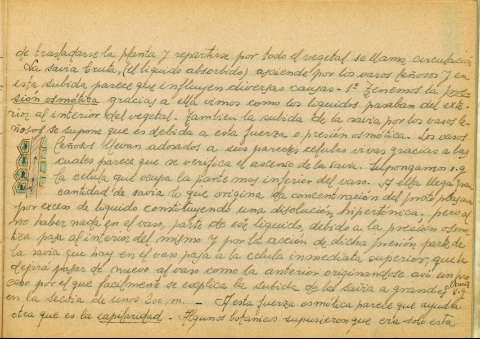 de trasladarse la planta y repartirse por todo el vegetal se llama circulación
La savia bruta, (el líquido absorbido) asciende por los vasos leñosos y en
esta subida parece que influyen diversas causas. 1º Tenemos la pre
sión osmótica gracias a ella vimos como los líquidos pasaban del exte-
rior al interior del vegetal. También la subida de la savia por los vasos le
ñosos se supone que es debida a esta fuerza o presión osmótica. Los vasos
leñosos llevan adosados a sus paredes células vivas gracias a las
cuales parece que se verifica el ascenso de la savia. Supongamos
la célula que ocupa la parte más inferior del vaso. A ella llega gran
cantidad de savia lo que origina la concentración del protoplasma
por exceso de líquido constituyendo una disolución hipertónica, pero al
no haber nada en el vaso, parte de este líquido, debido a la presión osmó
tica pasa al interior del mismo y por la acción de dicha presión parte de
la savia que hay en el vaso pasa a la célula inmediata superior, que la
dejará pasar de nuevo al vaso como la anterior originándose así un pro
ceso por el que fácilmente se explica la subida de la savia a grandes
en la secoya de unos 200 m. — A esta fuerza osmótica parece que ayuda
otra que es la capilaridad. — Algunos botánicos supusieron que era solo esta